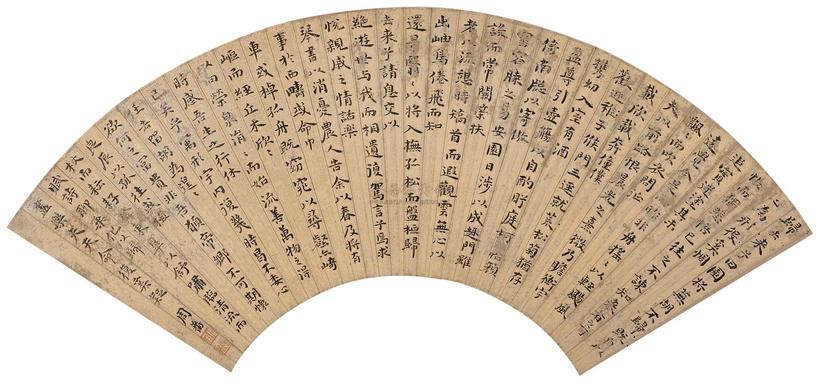 歸去來兮田園將蕪胡不歸既自以
心為形役奚惆
悵而獨悲悟已往之不諫知來者之可
追實迷塗其未
遠覺今是而昨非舟搖搖以輕颺風
飄飄而吹衣問征
夫以前路恨晨光之熹微乃瞻衡宇
載欣載奔僮僕
歡迎稚子候門三逕就荒松菊猶存
攜幼入室有酒
盈尊引壺觴以自酌眄庭柯以怡顏
倚南窗以寄傲
審容膝之易安園日涉以成趣門雖
設而常關策扶
老以流憩時矯首而遐觀雲無心以
出岫鳥倦飛而知
還景翳翳以將入撫孤松而盤桓歸
去來兮請息交以
絕遊世與我而相遺復駕言兮焉求
悅親戚之情話樂
琴書以消憂農人告余以春及將有
事於西疇或命巾
車或棹孤舟既窈窕以尋壑亦崎
嶇而經丘木欣欣
以向榮泉涓涓而始流善萬物之得
時感吾生之行休
已矣乎寓形宇內復幾時曷不委心
任去留胡為遑遑
欲何之富貴非吾願帝鄉不可期懷
良辰以孤往或植
杖而耘耔登東皋以舒嘯臨清流而
賦詩聊乘化以歸
盡樂夫天命復奚疑
周